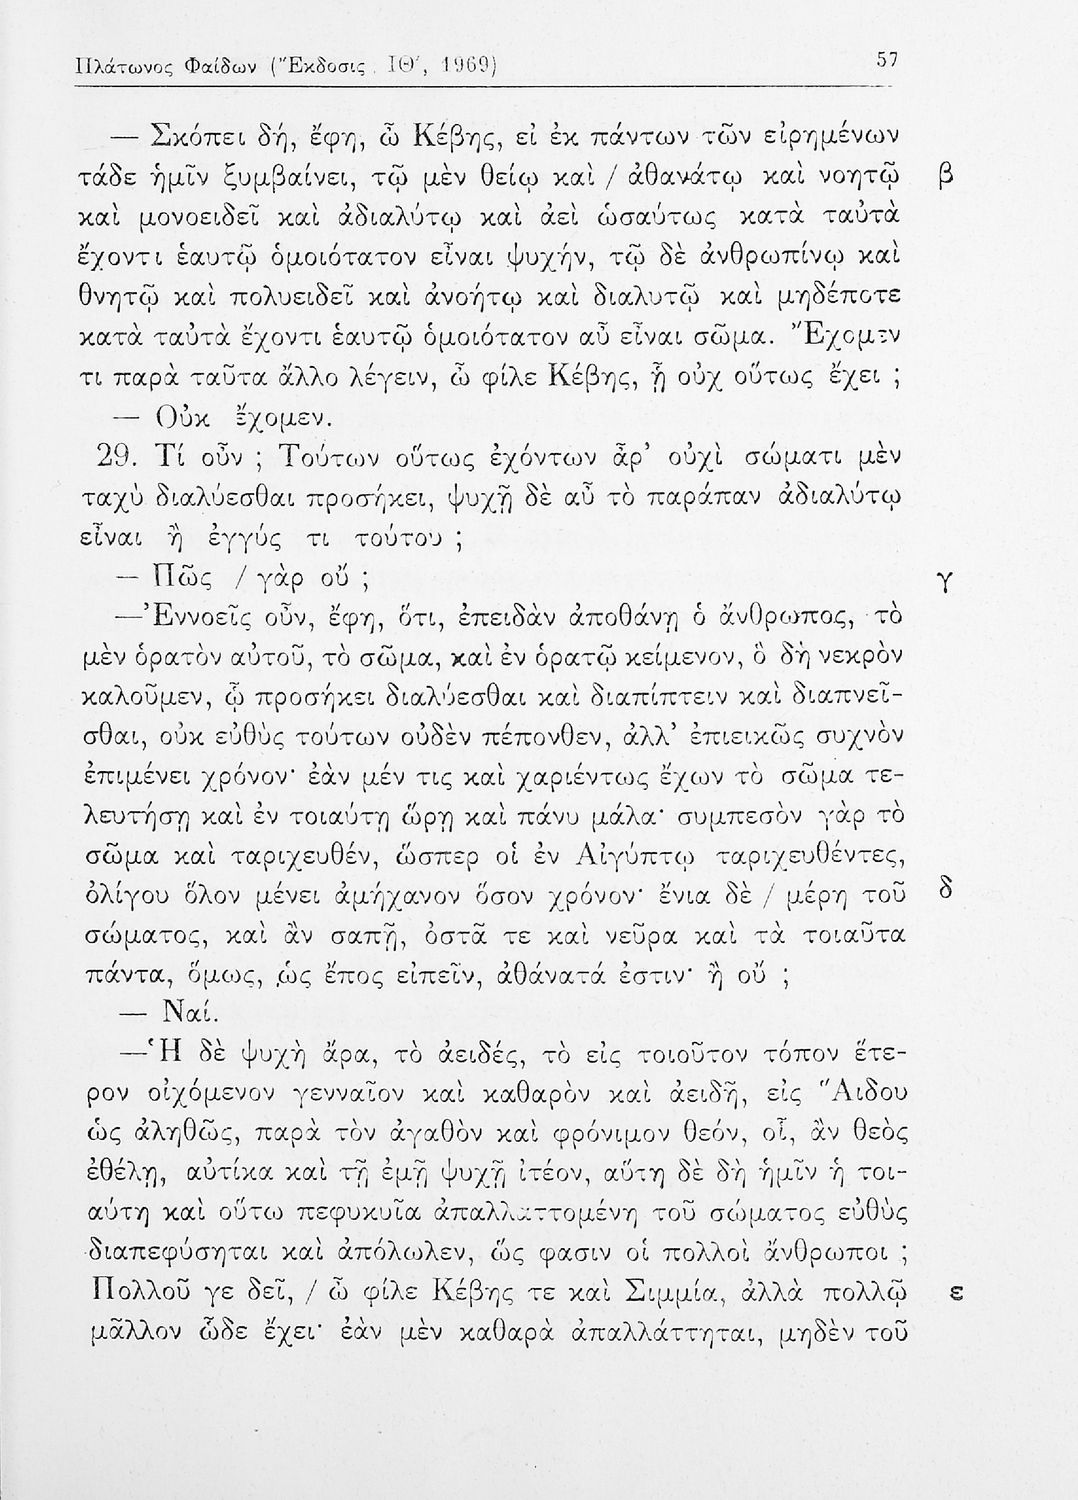 Πλάτωνος Φαίδων (Ἔκδοσις ΙΘ΄, 1969) 57
— Σκόπει δή, ἔφη, ὦ Κέβης, εἰ ἐκ πάντων τῶν εἰρημένων
τάδε ἡμῖν ξυμβαίνει, τῷ μὲν θείῳ καὶ / ἀθανάτῳ καὶ νοητῷ β
καὶ μονοειδεῖ καὶ ἀδιαλύτῳ καὶ ἀεὶ ὡσαύτως κατὰ ταὐτὰ
ἔχοντι ἑαυτῷ ὁμοιότατον εἶναι ψυχήν, τῷ δὲ ἀνθρωπίνῳ καὶ
θνητῷ καὶ πολυειδεῖ καὶ ἀνοήτῳ καὶ διαλυτῷ καὶ μηδέποτε
κατὰ ταὐτὰ ἔχοντι ἑαυτῷ ὁμοιότατον αὖ εἶναι σῶμα. Ἔχομεν
τι παρὰ ταῦτα ἄλλο λέγειν, ὦ φίλε Κέβης, ᾗ οὐχ οὕτως ἔχει ;
— Οὐκ ἔχομεν.
29. Τί οὖν ; Τούτων οὕτως ἐχόντων ἆρ’ οὐχὶ σώματι μὲν
ταχὺ διαλύεσθαι προσήκει, ψυχῇ δὲ αὖ τὸ παράπαν ἀδιαλύτῳ
εἶναι ἢ ἐγγύς τι τούτου ;
— Πῶς / γὰρ οὔ ; γ
—Ἐννοεῖς οὖν, ἔφη, ὅτι, ἐπειδὰν ἀποθάνῃ ὁ ἄνθρωπος, τὸ
μὲν ὁρατὸν αὐτοῦ, τὸ σῶμα, καὶ ἐν ὁρατῷ κείμενον, ὃ δὴ νεκρὸν
καλοῦμεν, ᾧ προσήκει διαλύεσθαι καὶ διαπίπτειν καὶ διαπνεῖ-
σθαι, οὐκ εὐθὺς τούτων οὐδὲν πέπονθεν, ἀλλ’ ἐπιεικῶς συχνὸν
ἐπιμένει χρόνον· ἐὰν μέν τις καὶ χαριέντως ἔχων τὸ σῶμα τε-
λευτήσῃ καὶ ἐν τοιαύτῃ ὥρῃ καὶ πάνυ μάλα· συμπεσὸν γὰρ τὸ
σῶμα καὶ ταριχευθέν, ὥσπερ οἱ ἐν Αἰγύπτῳ ταριχευθέντες,
ὀλίγου ὅλον μένει ἀμήχανον ὅσον χρόνον· ἔνια δὲ / μέρη τοῦ δ
σώματος, καὶ ἂν σαπῇ, ὀστᾶ τε καὶ νεῦρα καὶ τὰ τοιαῦτα
πάντα, ὅμως, ὡς ἔπος εἰπεῖν, ἀθάνατά ἐστιν· ἢ οὔ ;
— Ναί.
—Ἡ δὲ ψυχὴ ἄρα, τὸ ἀειδές, τὸ εἰς τοιοῦτον τόπον ἕτε-
ρον οἰχόμενον γενναῖον καὶ καθαρὸν καὶ ἀειδῆ, εἰς Ἅιδου
ὡς ἀληθῶς, παρὰ τὸν ἀγαθὸν καὶ φρόνιμον θεόν, οἷ, ἂν θεὸς
ἐθέλῃ, αὐτίκα καὶ τῇ ἐμῇ ψυχῇ ἰτέον, αὕτη δὲ δὴ ἡμῖν ἡ τοι-
αύτη καὶ οὕτω πεφυκυῖα ἀπαλλαττομένη τοῦ σώματος εὐθὺς
διαπεφύσηται καὶ ἀπόλωλεν, ὥς φασιν οἱ πολλοὶ ἄνθρωποι ;
Πολλοῦ γε δεῖ, / ὦ φίλε Κέβης τε καὶ Σιμμία, ἀλλὰ πολλῷ ε
μᾶλλον ὧδε ἔχει· ἐὰν μὲν καθαρὰ ἀπαλλάττηται, μηδὲν τοῦ